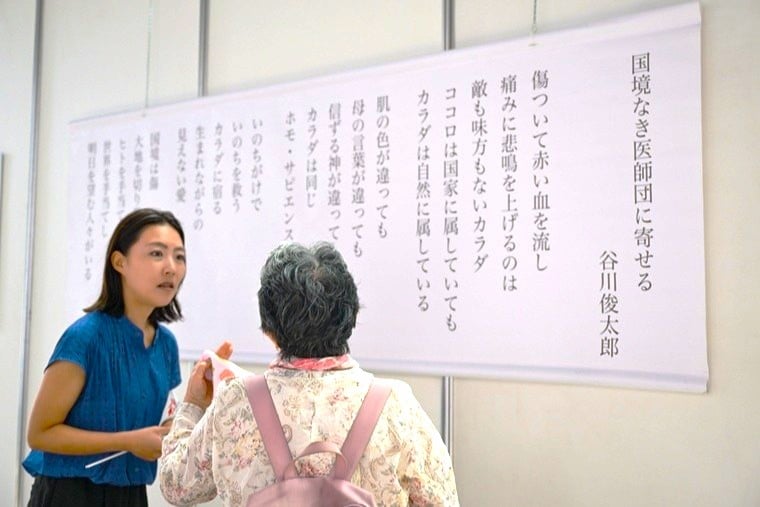 国境なき医師団に寄せる
谷川俊太郎
傷ついて赤い血を流し
痛みに悲鳴を上げるのは
敵も味方もないカラダ
ココロは国家に属していても
カラダは自然に属している
肌の色が違っても
母の言葉が違っても
信ずる神が違って
カラダは同じ
ホモ・サピエンス
いのちがけで
いのちを救う
カラダに宿る
生まれながらの
見えない愛
国境は傷
大地を切り
ヒトを手当て
世界を手当てし
明日を望む人々がいる